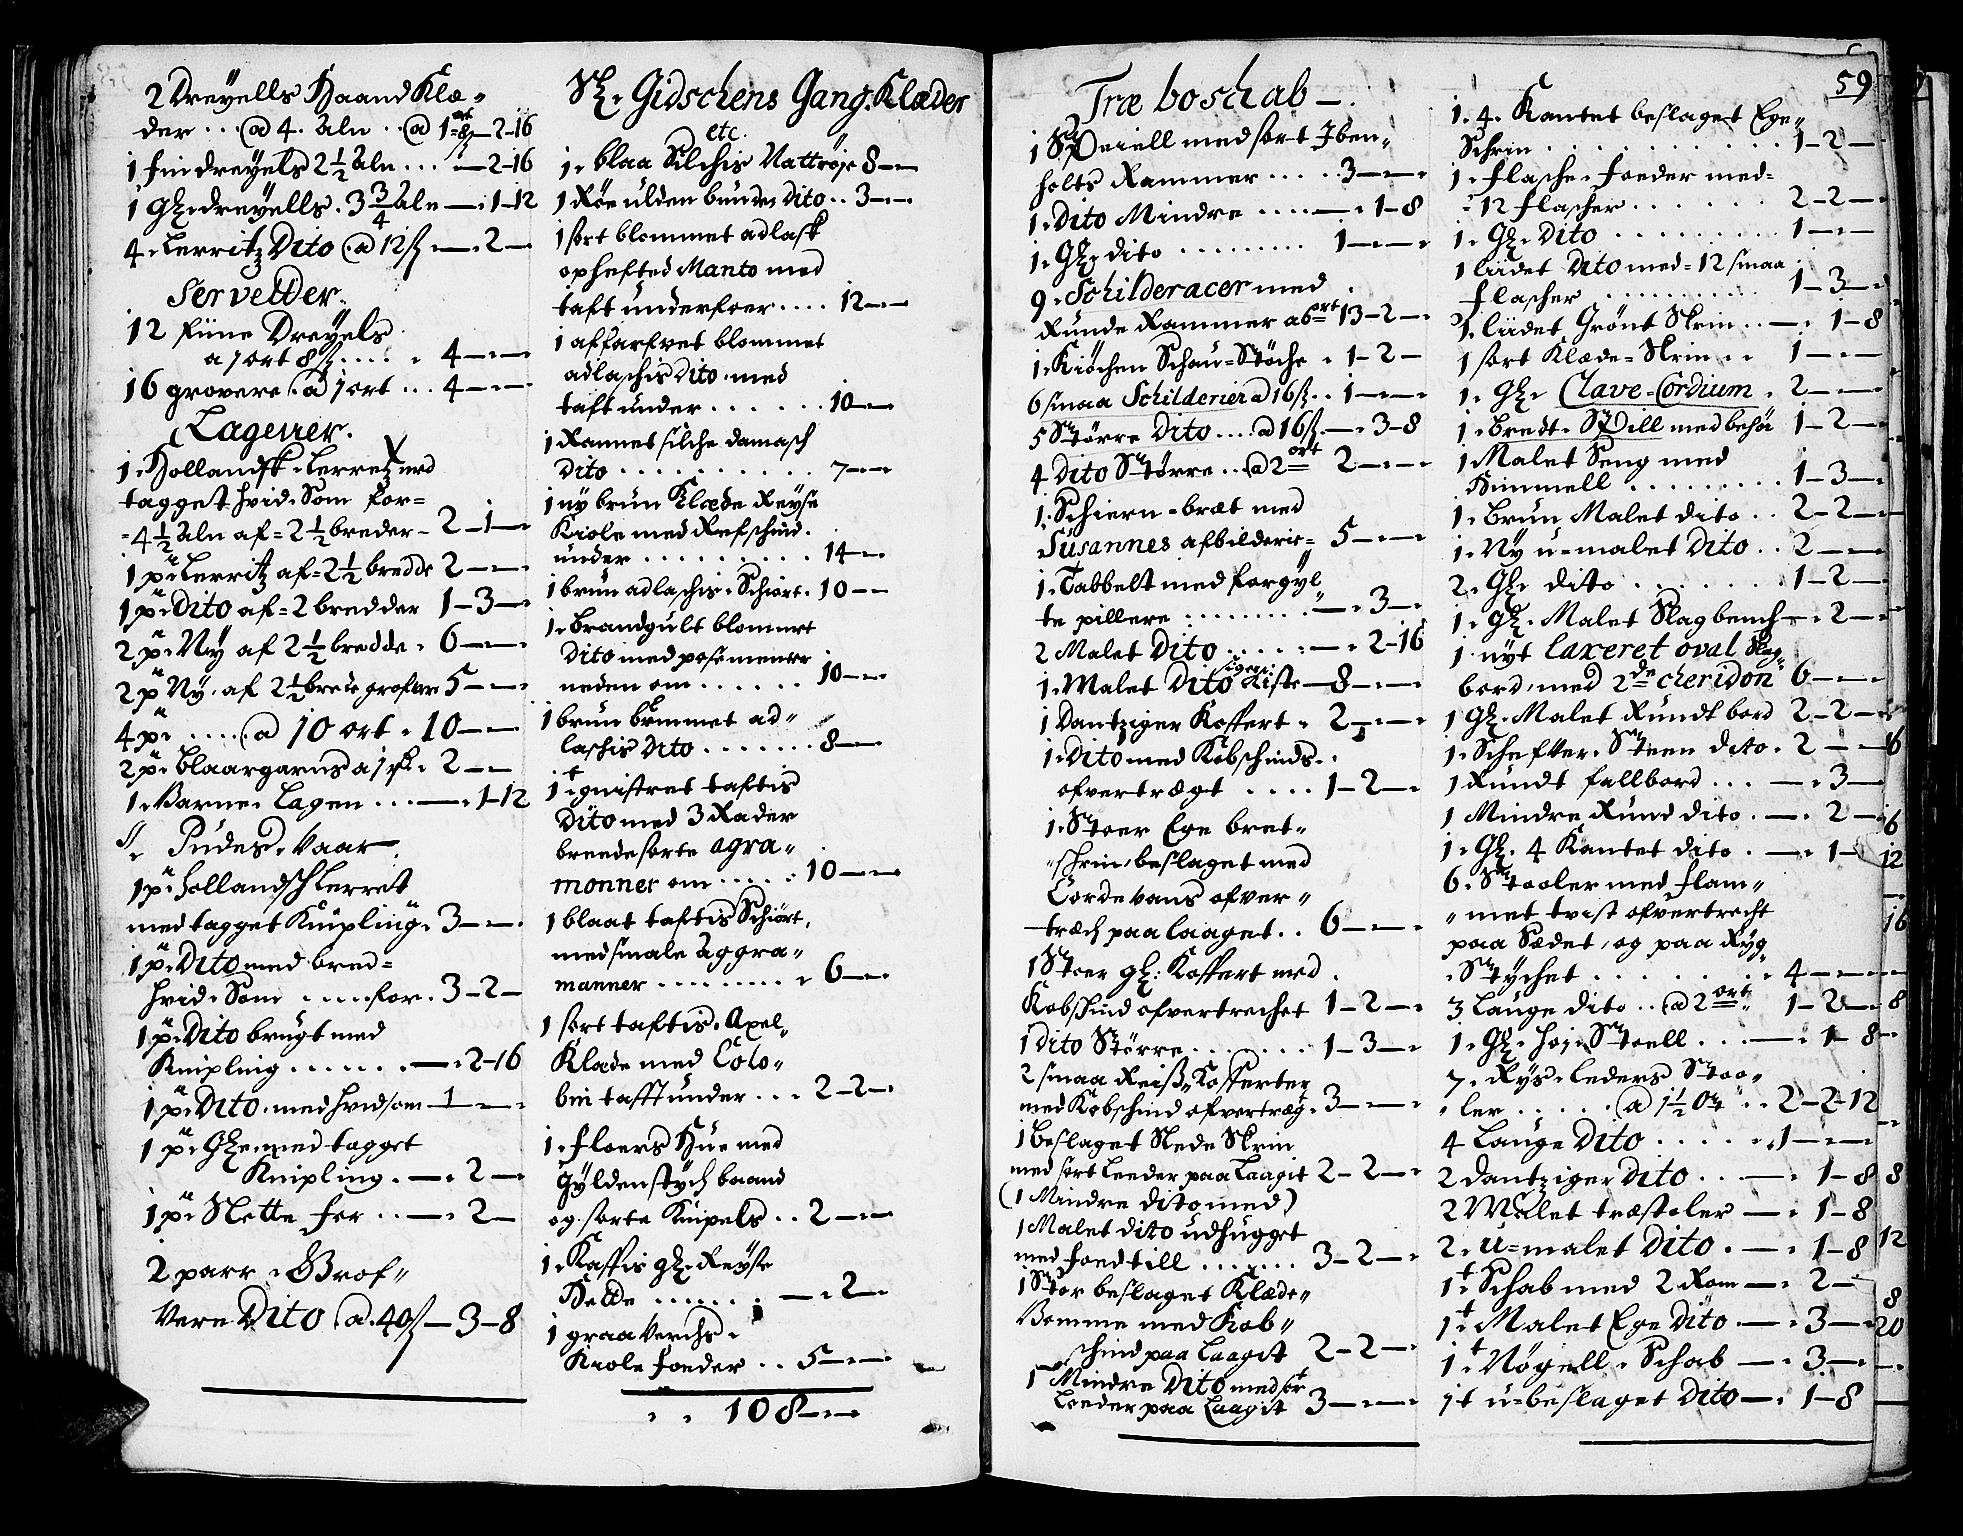 2 Dreyells Haand Klæ-
der ... @ 4. Aln .. @ 1 ort 8ß — 2-16
1 fin dreyels 2½ Aln ... — 2-16
1 Gl. dreyells. 3¾ Aln — 1-12
4. Lerritz Dito @ 12ß — 2 —
Servetter.
12 fiine Dreyels
a 1 ort 8ß .... 4 —
16 grovere @ 1 ort ... 4 —
Lagener.
1. Hollandsk. Lerretz med
tagget hvid. Som for=
4½ Aln af = 2½ breder — 2-1 —
1 p. Lerritz af = 2½ bredde 2 —
1 p. Dito af = 2 bredder 1-3 —
2 p. Ny af 2½ bredde. 6 —
2 p. Ny. af 2½ brede grofver 5 —
4 p. .... @ 10 ort. 10 —
2 p. blaargarns a 1 rk. 2 —
1. Barne. Lagen ... — 1-12
Pudes. Vaar.
1 p. hollandsch Lerret
med tagget Knipling. 3 —
1 p. Dito med bred=
hvid. Som .... for. 3-2 —
1 p. Dito brugt med
Knipling ...... — 2-16
1 p. Dito. med hvid som — 1 —
1 p. Gl. med tagget
Knipling. — 2 —
1 p. Slette for .. — 2 —
2 parr. Grof-
vere Dito @ 40ß — 3-8
Sl. Gidschens Gang. Klæder
etc.
1. blaa Silchis Nattrøje 8 —
1 Røe ulden bunden Dito .. 3 —
1 sort blommet adlask
ophefted Manto med
taft underfoer .... 12 —
1 affarfvet blommet
adlaschis Dito. med
taft under ...... 10 —
1 Rannet silche damasch
Dito .......... 7 —
1 ny brun Klæde Reyse
Kiole med Refschind.
under .......... 14 —
1 brun adlaschis. Schiört. 10 —
1. Brandgult blommet
Dito med posementer
neden om ...... 10 —
1 brun blommet ad-
laschis Dito ....... 8 —
1 gnistret taftis
Dito med 3 Rader
breede sorte agra-
monner om .... 10 —
1 blaat taftis Schiört.
med smale Aggra-
manner ........ 6 —
1 sort taftis. Axel-
Klæde med Colo-
bin tafft under ... 2-2 —
1. floers Hue med
Gyldenstych baand
og sorte Knipels .. 2 —
1. Kaffis gl. Reyse
Hette ...... — 2 —
1 graa Verchs.
Kiole foeder .. 5 —
108 —
Træ boschab —.
59
1 Speiell med sort Iben-
holts Rammer ..... 3 —
1. Dito Mindre .... — 1-8
1. Gl. dito ........ 1 —
9. Schilderacer med
Runde Rammer a 6 ort 13-2 —
1. Kiöchen Schau-Støche. 1-2 —
6 smaa Schilderier a 16ß .. 1 —
5 Større Dito .... a 16ß — 3-8
4 Dito Større .. @ 2 ort 2 —
1. Schiern-bræt med
Susannes afbilderie= 5 —
1. Tabbelt med forgyl-
te pillere ........ — 3 —
2 Malet Dito ...... — 2-16
1. Malet Dito Kiste — 8 —
1 Dantziger Koffert. 2 —
1. Dito med Kobschinds.
ofvertrægt .... 1-2 —
1. Stoer Ege bret-
schrin, beslaget med
Cordevans ofver-
træch paa laaget .. 6 —
1 Stoer gl: Koffert med
Kobschind ofvertrechet 1-2 —
1 Dito Større ....... 1-3 —
2 smaa Reiß. Kofferter
med Kobschind ofvertræg. 3 —
1 Beslaget Slede Skrin
med sort Leeder paa Laagit 2-2 —
(1 Mindre Dito med)
1 Malet Dito udhugget
med foed till ...... 3-2 —
1 Stor beslaget Klæde-
Vomme med Kob-
schind paa Laagit 2-2 —
1 Mindre Dito med sort
Leeder paa Laagit 3 —
1. 4. Kantet beslaget Ege=
Schrin .......... 1-2 —
1. flasche. foeder med=
12 flascher ...... 2-2 —
1. Gl. Dito ......... 1 —
1 liidet Dito med = 12 smaa
flascher .......... 1-3 —
1. liidet Grønt Skrin .. — 1-8
1 sort Klæde-Skrin .. 1 —
1. Gl. Clave-Cordium. 2 —
1. Bredt. Spill med behör 1-2 —
1 Malet Seng med
Himmell ......... 1-3 —
1. Brun Malet Dito .. 2-2 —
1. Ny u-malet Dito .. 2 —
2. Gl. dito ....... 1-2 —
1. Gl. Malet Slagbench — 2 —
1 nyt laxeret oval Slag-
bord. med 2de cheridon 6 —
1 Gl. Malet Rundt bord 2-2 —
1. Schefter. Steen dito. 2 —
1 Rundt fallbord ... — 3 —
1 Mindre Rund dito. — 2 —
1. Gl. 4 Kantet dito. — 1 —
6. Stooler med flam-
met tvist ofvertrecht
paa Sædet, og paa Ryg-
Stychet ......... 4 —
3 Lauge dito .. @ 2 ort 1-2 —
1. Gl. høj. Stoell ... — 1-8
7. Rys. leders Stoo-
ler ..... @ 1½ Ort .. 2-2-12
4 Lauge Dito ..... 1 —
2 dantziger Dito ... — 1-8
2 Malet træstoler — 1-8
2. u-malet Dito. — 1-8
1 Schab med 2 Rom — 2 —
1 Malet Ege Dito — 3 —
1 Nøgell. Schab — 3 —
1 u-beslaget Dito — 1-8
16
16
12
16
8
8
12
8
20